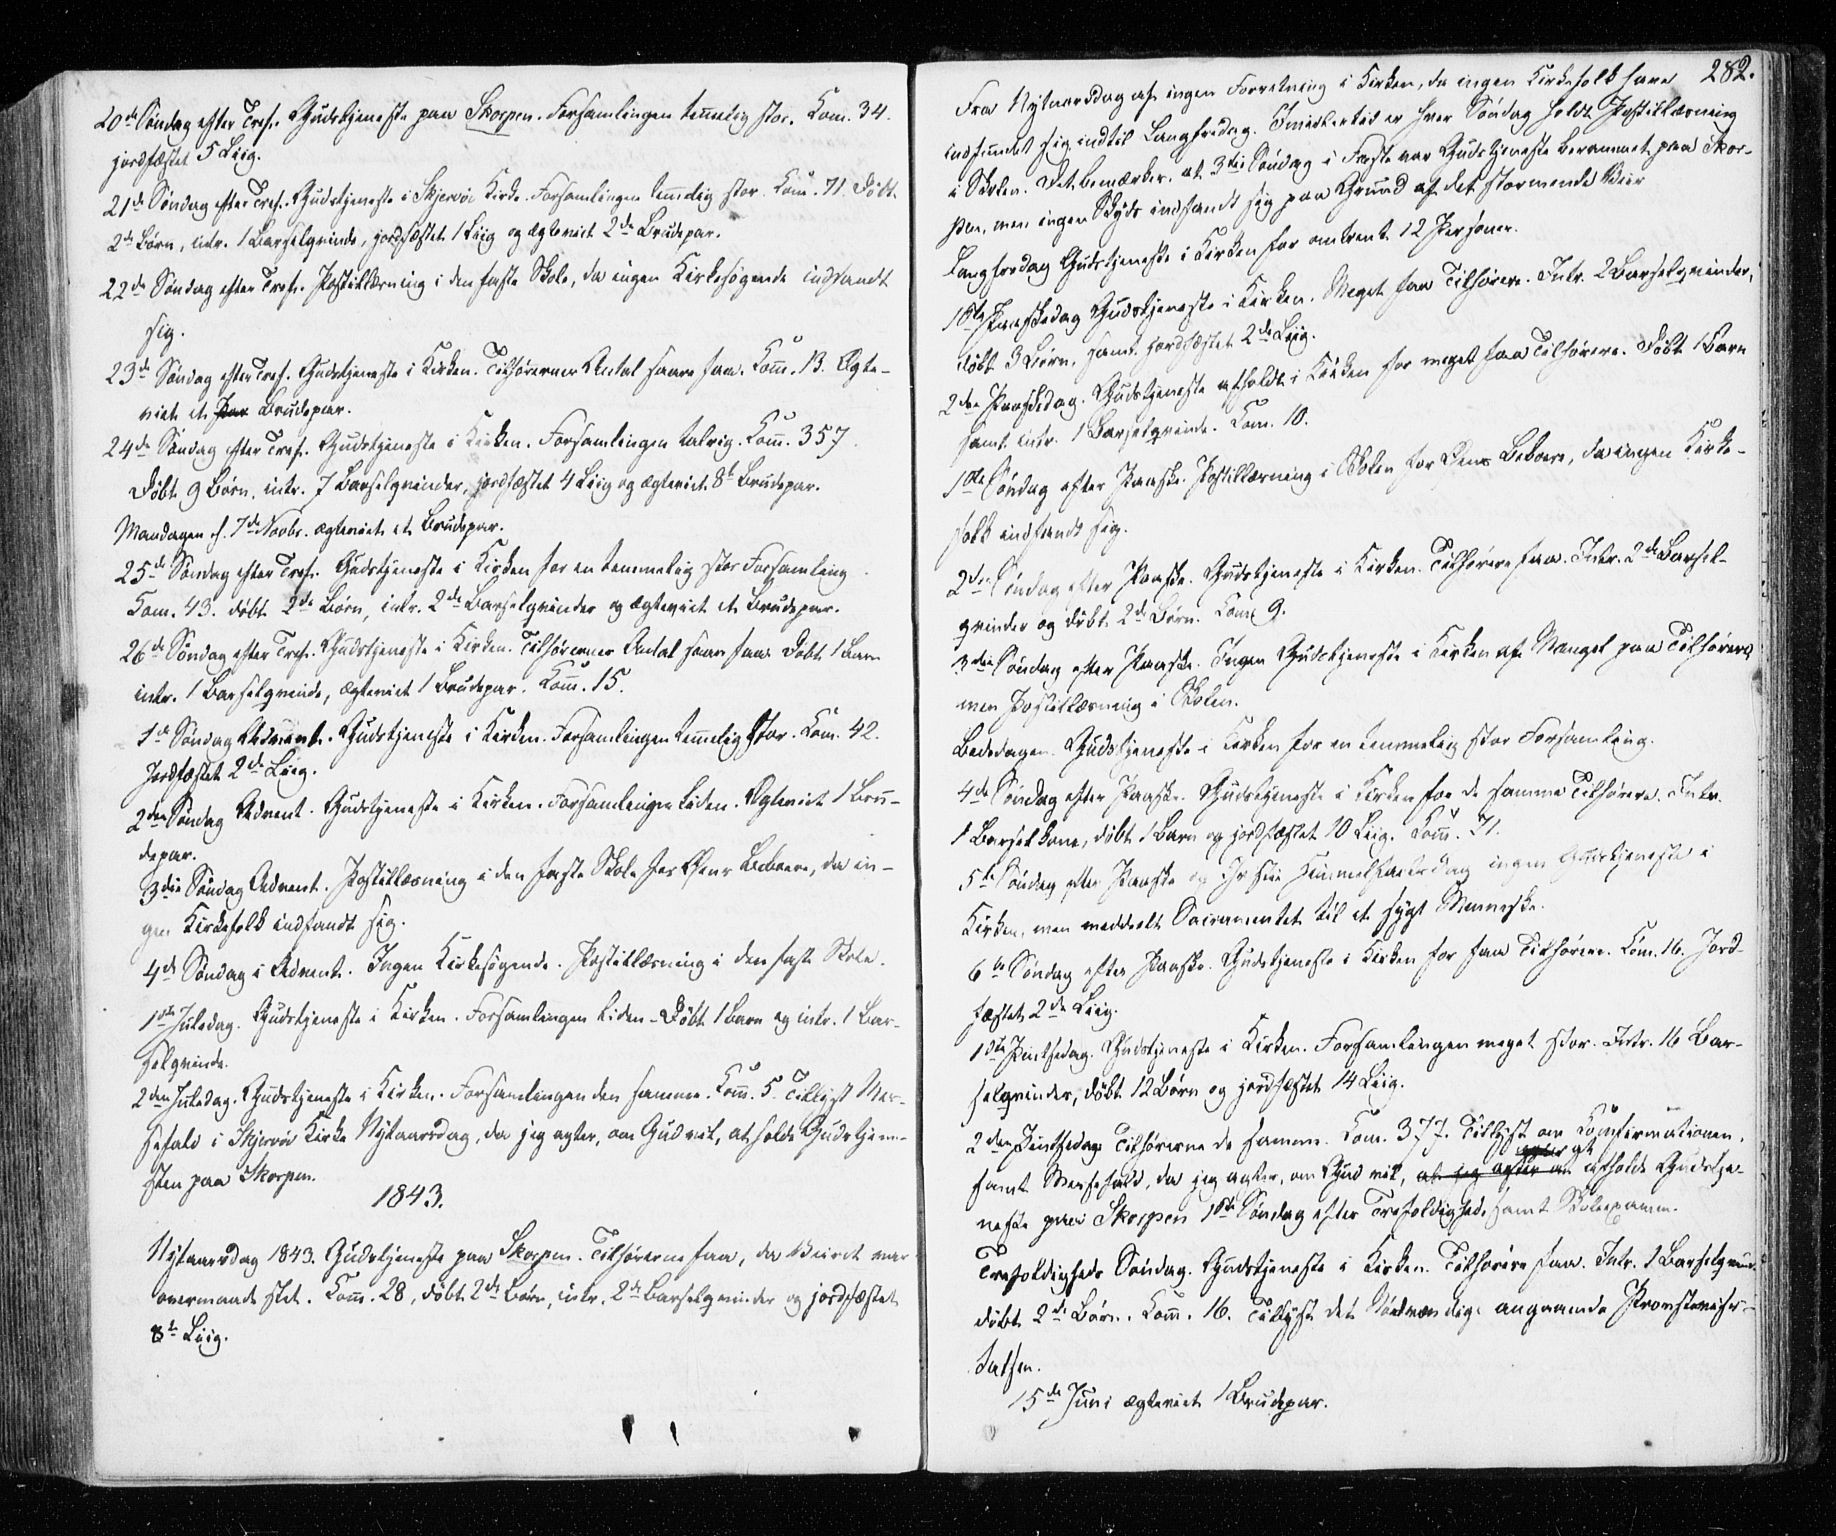 20de Søndag efter Tref. Gudstjeneste paa Skorpen. Forsamlingen temelig stor. Kom. 34.
jordfæstet 5 Liig.
21de Søndag efter Tref. Gudstjeneste i Skjervøe Kirke. Forsamlingen temelig stor. Kom. 71 Døbt
2de Børn, intr. 1 Barselqvinde, jordfæstet 1 Liig og ægteviet 2de Brudepar.
22de Søndag efter Tref. Postillæsning i den faste Skole, da ingen Kirkesøgende indfandt
sig.
23de Søndag efter Tref. Gudstjeneste i Kirken. Tilhørernes Antal saare faa. Kom. 13. Ægte-
viet et Par Brudepar.
24de Søndag efter Tref. Gudstjeneste i Kirken. Forsamlingen talrig. Kom. 357.
Døbt 9 Børn, intr. 7 Barselqvinder, jordfæstet 4 Liig og ægteviet 8t Brudepar.
Mandagen d. 7de Novbr. ægteviet et Brudepar.
25de Søndag efter Tref. Gudstjeneste i Kirken for en temmelig stor Forsamling.
Kom. 43. døbt 2de Børn, intr. 2de Barselqvinder og ægteviet et Brudepar.
26de Søndag efter Tref. Gudstjeneste i Kirken. Tilhørernes Antal saare faa. Døbt 1 Barn
intr. 1 Barselqvinde, ægteviet 1 Brudepar. Kom. 15.
1ste Søndag Advent. Gudstjeneste i Kirken. Forsamlingen temelig Stor. Kom. 42.
Jordfæstet 2de Liig.
2den Søndag Advent. Gudstjeneste i Kirken. Forsamlingen liden. Ægteviet 1 Bru-
depar.
3die Søndag Advent. Postillæsning i den faste Skole for Øens Beboere, da in-
gen Kirkefolk indfandt sig.
4de Søndag i Advent. Ingen Kirkesøgende. Postillæsning i den faste Skole.
1ste Juledag. Gudstjeneste i Kirken. Forsamlingen liden. Døbt 1 Barn og intr. 1 Bar-
selqvinde.
2den Juledag. Gudstjeneste i Kirken. Forsamlingen den samme. Kom. 5. Tillyst Mes-
sefald i Skjervøe Kirke Nytaarsdag, da jeg agter, om Gud vil, at holde Gudstjene-
sten paa Skorpen.
1843.
Nytaarsdag 1843. Gudstjeneste paa Skorpen. Tilhørerne faa, da Veiret var
overmaade slet. Kom. 28, døbt 2de Børn, intr. 2de Barselqvinder og jordfæstet
8t Liig.
282.
Fra Nytaarsdag af ingen Forretning i Kirken, da ingen Kirkefolk have
indfundet sig indtil Langfredag. Imidlertid er hver Søndag holdt Postillæsning
i Skolen. Det bemærkes, at 3die Søndag i Faste var Gudstjeneste berammet paa Skor-
pen, men ingen Skyds indfandt sig paa Grund af det stormende Veir
Langfredag Gudstjeneste i Kirken for omtrent 12 Personer.
1ste Paaskedag Gudstjeneste i Kirken. Meget faa Tilhørere. Intr. 2 Barselqvinder,
døbt 3 Børn, samt jordfæstet 2de Liig.
2den Paaskedag. Gudstjeneste afholdt i Kirken for meget faa Tilhørere. Døbt 1 Barn
samt intr. 1 Barselqvinde. Kom. 10.
1ste Søndag efter Paaske. Postillæsning i Skolen for Øens Beboere, da ingen Kirke-
folk indfandt sig.
2den Søndag efter Paaske. Gudstjeneste i Kirken. Tilhørere faa. Intr. 2de Barsel-
qvinder og døbt 2de Børn. Kom. 9.
3die Søndag efter Paaske. Ingen Gudstjeneste i Kirken af Mangel paa Tilhørere,
men Postillæsning i Skolen.
Bededagen. Gudstjeneste i Kirken for en temmelig stor Forsamling.
4de Søndag efter Paaske. Gudstjeneste i Kirken for de samme Tilhørere. Intr.
1 Barselkone, døbt 1 Barn og jordfæstet 10 Liig. Kom. 71.
5te Søndag efter Paaske og Christi Himmelfartsdag ingen Gudstjeneste i
Kirken, men meddeelt Sacramentet til et sygt Menneske.
6te Søndag efter Paaske. Gudstjeneste i Kirken for faa Tilhørere. Kom. 16. Jord-
fæstet 2de Liig.
1ste Pintsedag. Gudstjeneste i Kirken. Forsamlingen meget stor. Intr. 16 Bar-
selqvinder, døbt 12 Børn og jordfæstet 14 Liig.
2den Pintsedag Tilhørerne de samme. Kom. 377. Tillyst om Confirmationen,
samt Messefald, da jeg agter, om Gud vil, at jeg agter at afholde Gudstje-
neste paa Skorpen 1ste Søndag efter Trefoldighed, samt Skoleexamen.
Trefoldigheds Søndag. Gudstjeneste i Kirken. Tilhørere faa. Intr. 1 Barselqvinde
døbt 2de Børn. Kom. 16. Tillyst det Nødvendige angaaende Provstevisi-
tatsen.
15de Juni ægteviet 1 Brudepar.